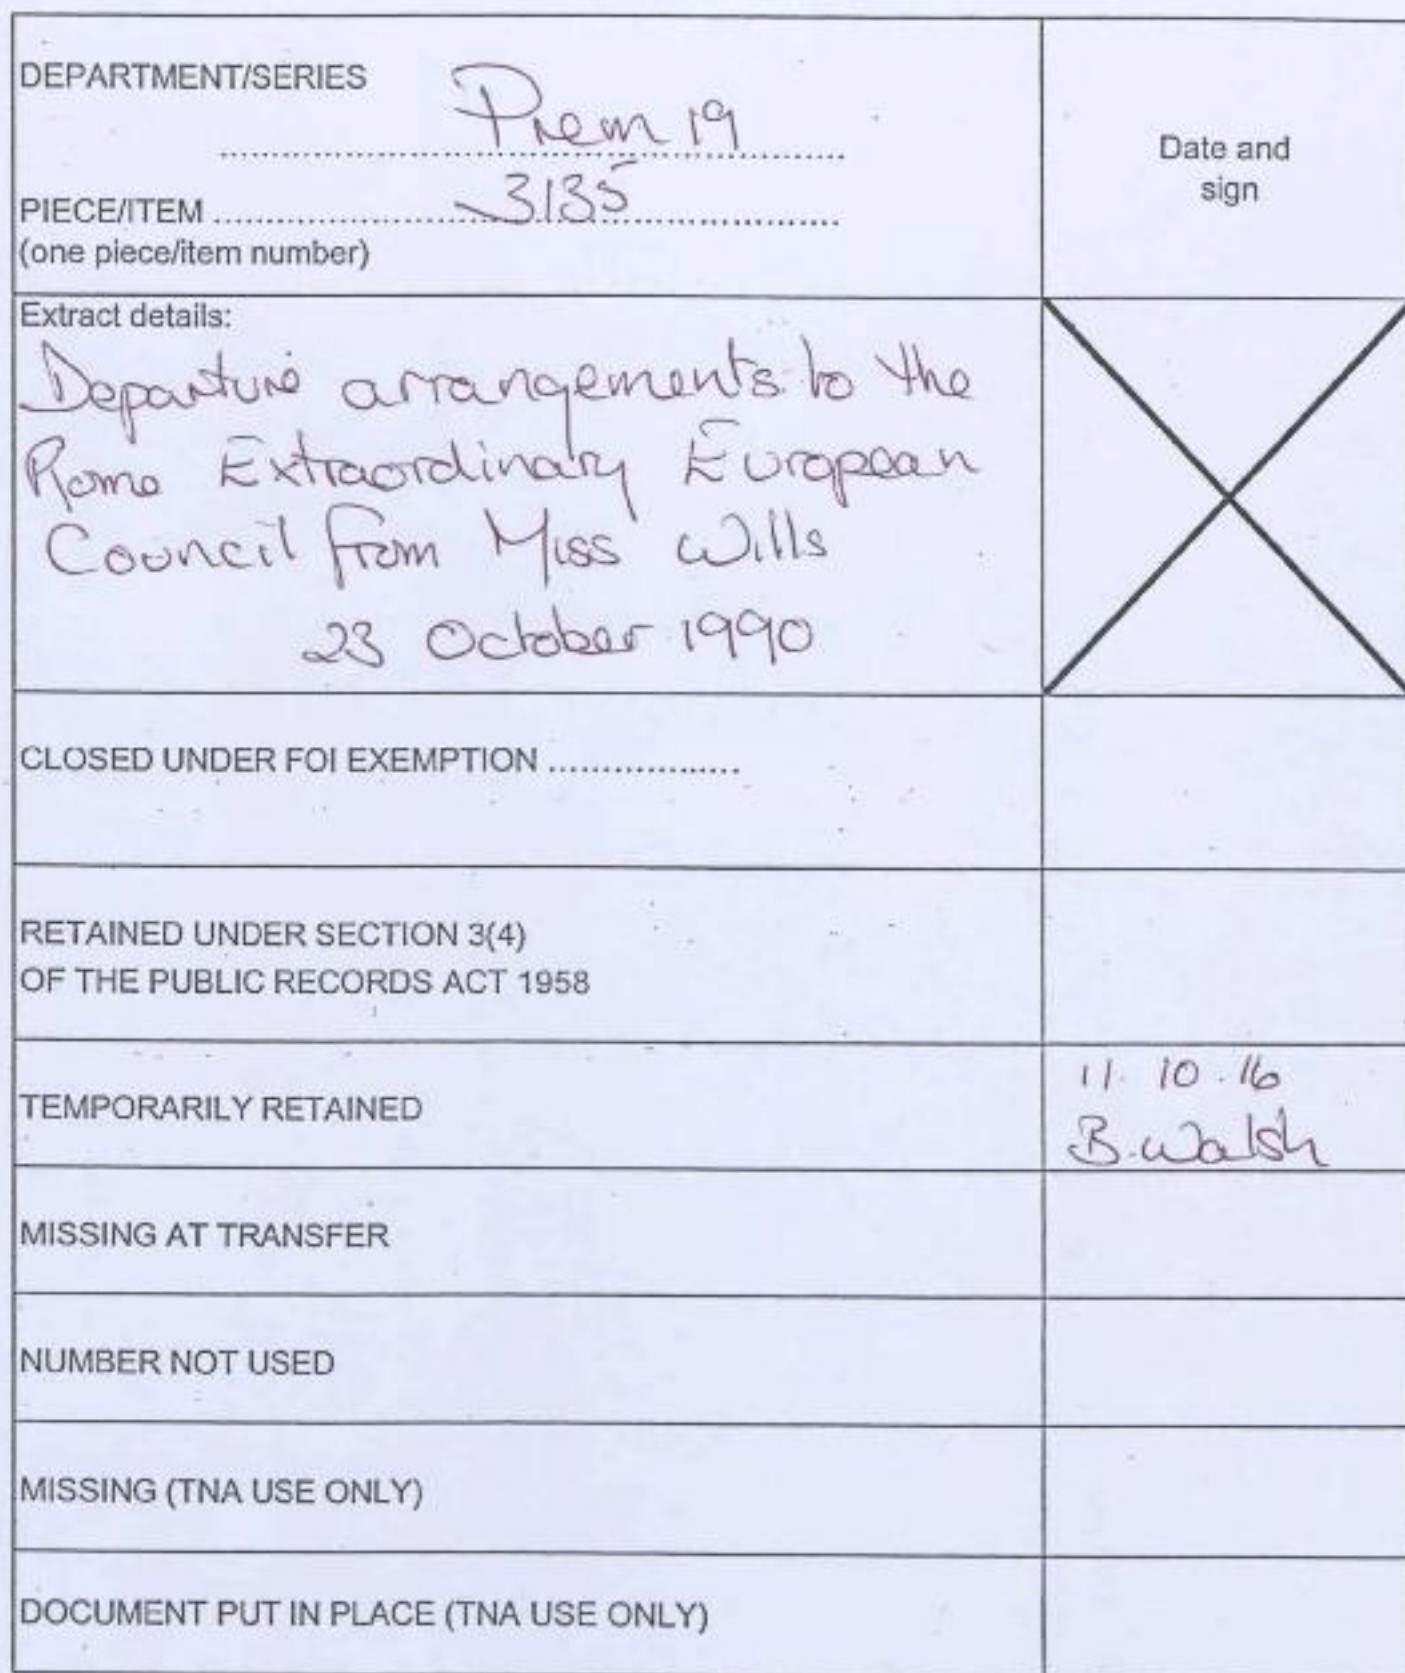 DEPARTMENT/SERIES
Prem 19
PIECE/ITEM ........ 3135 ........
(one piece/item number)
Date and
sign
Extract details:
Departure arrangements to the
Rome Extraordinary European
Council from Miss Wills
23 October 1990
CLOSED UNDER FOI EXEMPTION ..................
RETAINED UNDER SECTION 3(4)
OF THE PUBLIC RECORDS ACT 1958
TEMPORARILY RETAINED
11.10.16
B.Walsh
MISSING AT TRANSFER
NUMBER NOT USED
MISSING (TNA USE ONLY)
DOCUMENT PUT IN PLACE (TNA USE ONLY)